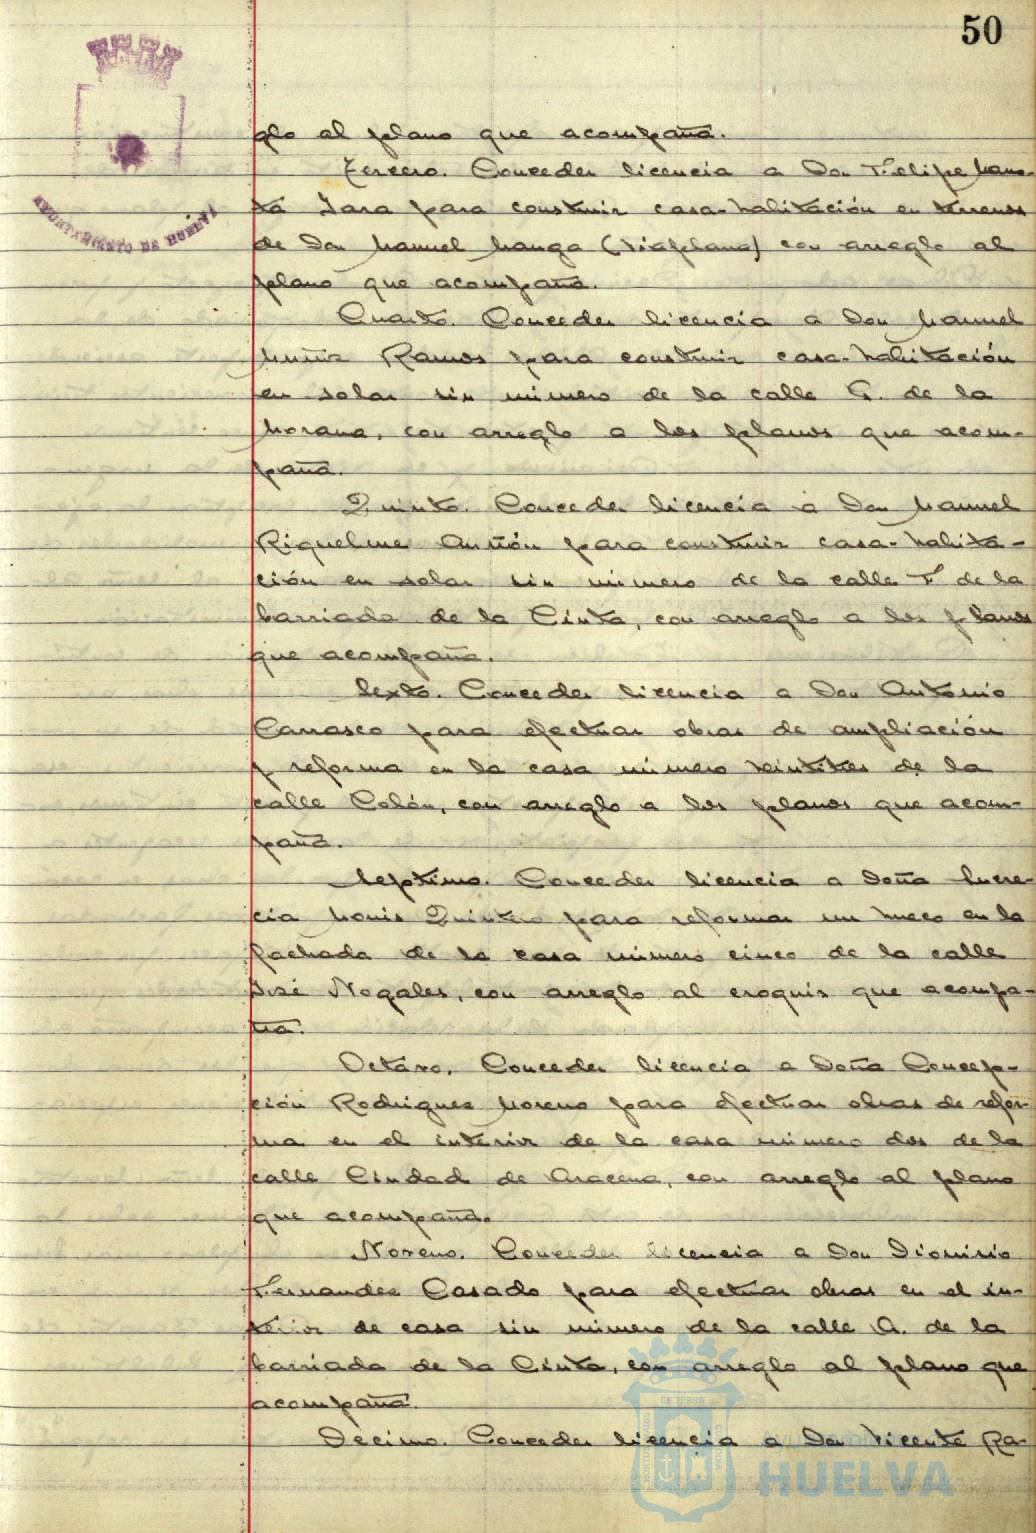 50
AYUNTAMIENTO DE HUELVA
glo al plano que acompaña.
Tercero. Conceder licencia a Don Felipe
Jara para construir casa-habitación en terrenos
de Don Manuel (Viaplana) con arreglo al
plano que acompaña.
Cuarto. Conceder licencia a Don Manuel
Muñiz Ramos para construir casa-habitación
en solar sin número de la calle G. de la
Morana, con arreglo a los planos que acom-
paña.
Quinto. Conceder licencia a Don Manuel
Riquelme para construir casa-habita-
ción en solar sin número de la calle F. de la
barriada de la Cinta, con arreglo a los planos
que acompaña.
Sexto. Conceder licencia a Don Antonio
Carrasco para efectuar obras de ampliación
y reforma en la casa número veintitres de la
calle Colón, con arreglo a los planos que acom-
paña.
Septimo. Conceder licencia a Doña Lucre-
cia Quintero para reformar un hueco en la
fachada de la casa número cinco de la calle
José Nogales, con arreglo al croquis que acompa-
ña.
Octavo. Conceder licencia a Doña Concep-
ción Rodriguez Moreno para efectuar obras de refor-
ma en el interior de la casa número dos de la
calle Ciudad de Aracena, con arreglo al plano
que acompaña.
Noveno. Conceder licencia a Don Dionisio
Fernandez Casado para efectuar obras en el in-
terior de casa sin número de la calle A. de la
barriada de la Cinta, con arreglo al plano que
acompaña.
Decimo. Conceder licencia a Don Vicente Ra-
HUELVA